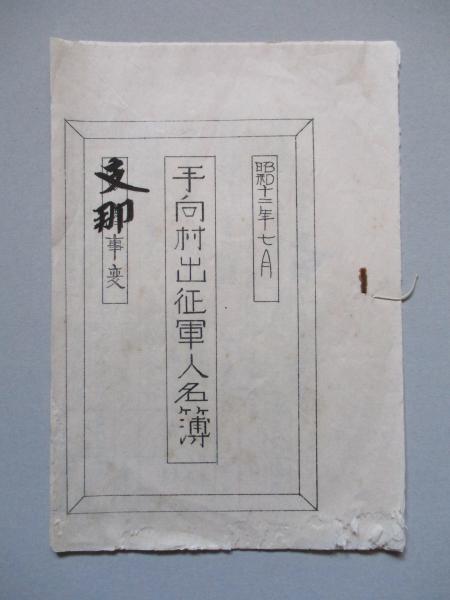 昭和十二年七月
手向村出征軍人名簿
支那事変